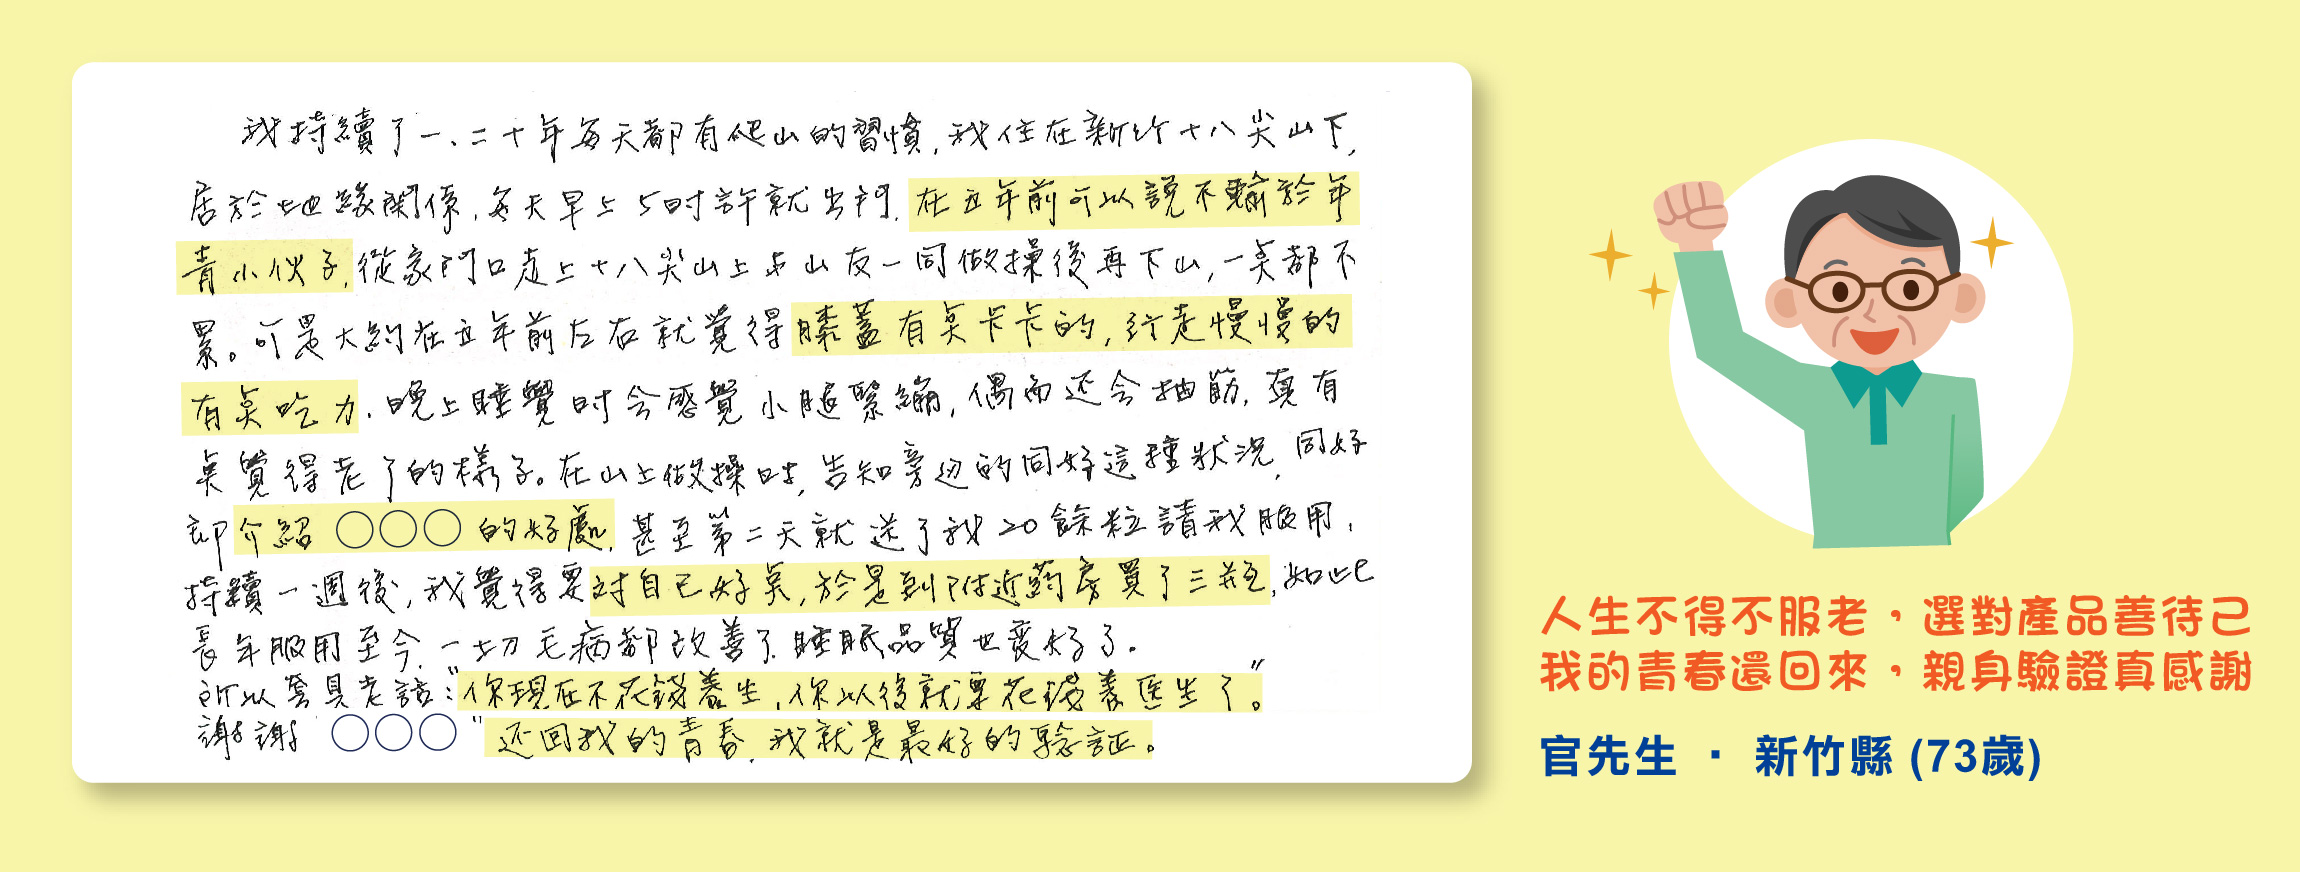 我持續了一、二十年每天都有爬山的習慣,我住在新竹十八尖山下,
居於地緣關係,每天早上5時許就出門,在五年前可以說不輸於年
青小伙子,從家門口走上十八尖山上與山友一同做操後再下山,一點都不
累。可是大約在五年前左右就覺得膝蓋有點卡卡的,行走慢慢的
有點吃力,晚上睡覺時會感覺小腿緊繃,偶而还会抽筋,真有
點覺得老了的樣子。在山上做操時,告知旁边的同好這種狀況,同好
即介紹○○○的好處,甚至第二天就送了我20餘粒請我服用,
持續一週後,我覺得要对自己好點,於是到附近药房買了三瓶,如此
長年服用至今,一切毛病都改善了,睡眠品質也变好了。
所以套具老話:"你現在不花錢養生,你以後就要花錢養医生了。"
謝謝○○○"还回我的青春,我就是最好的驗証。
人生不得不服老,選對產品善待己
我的青春還回來,親身驗證真感謝
官先生 · 新竹縣 (73歲)